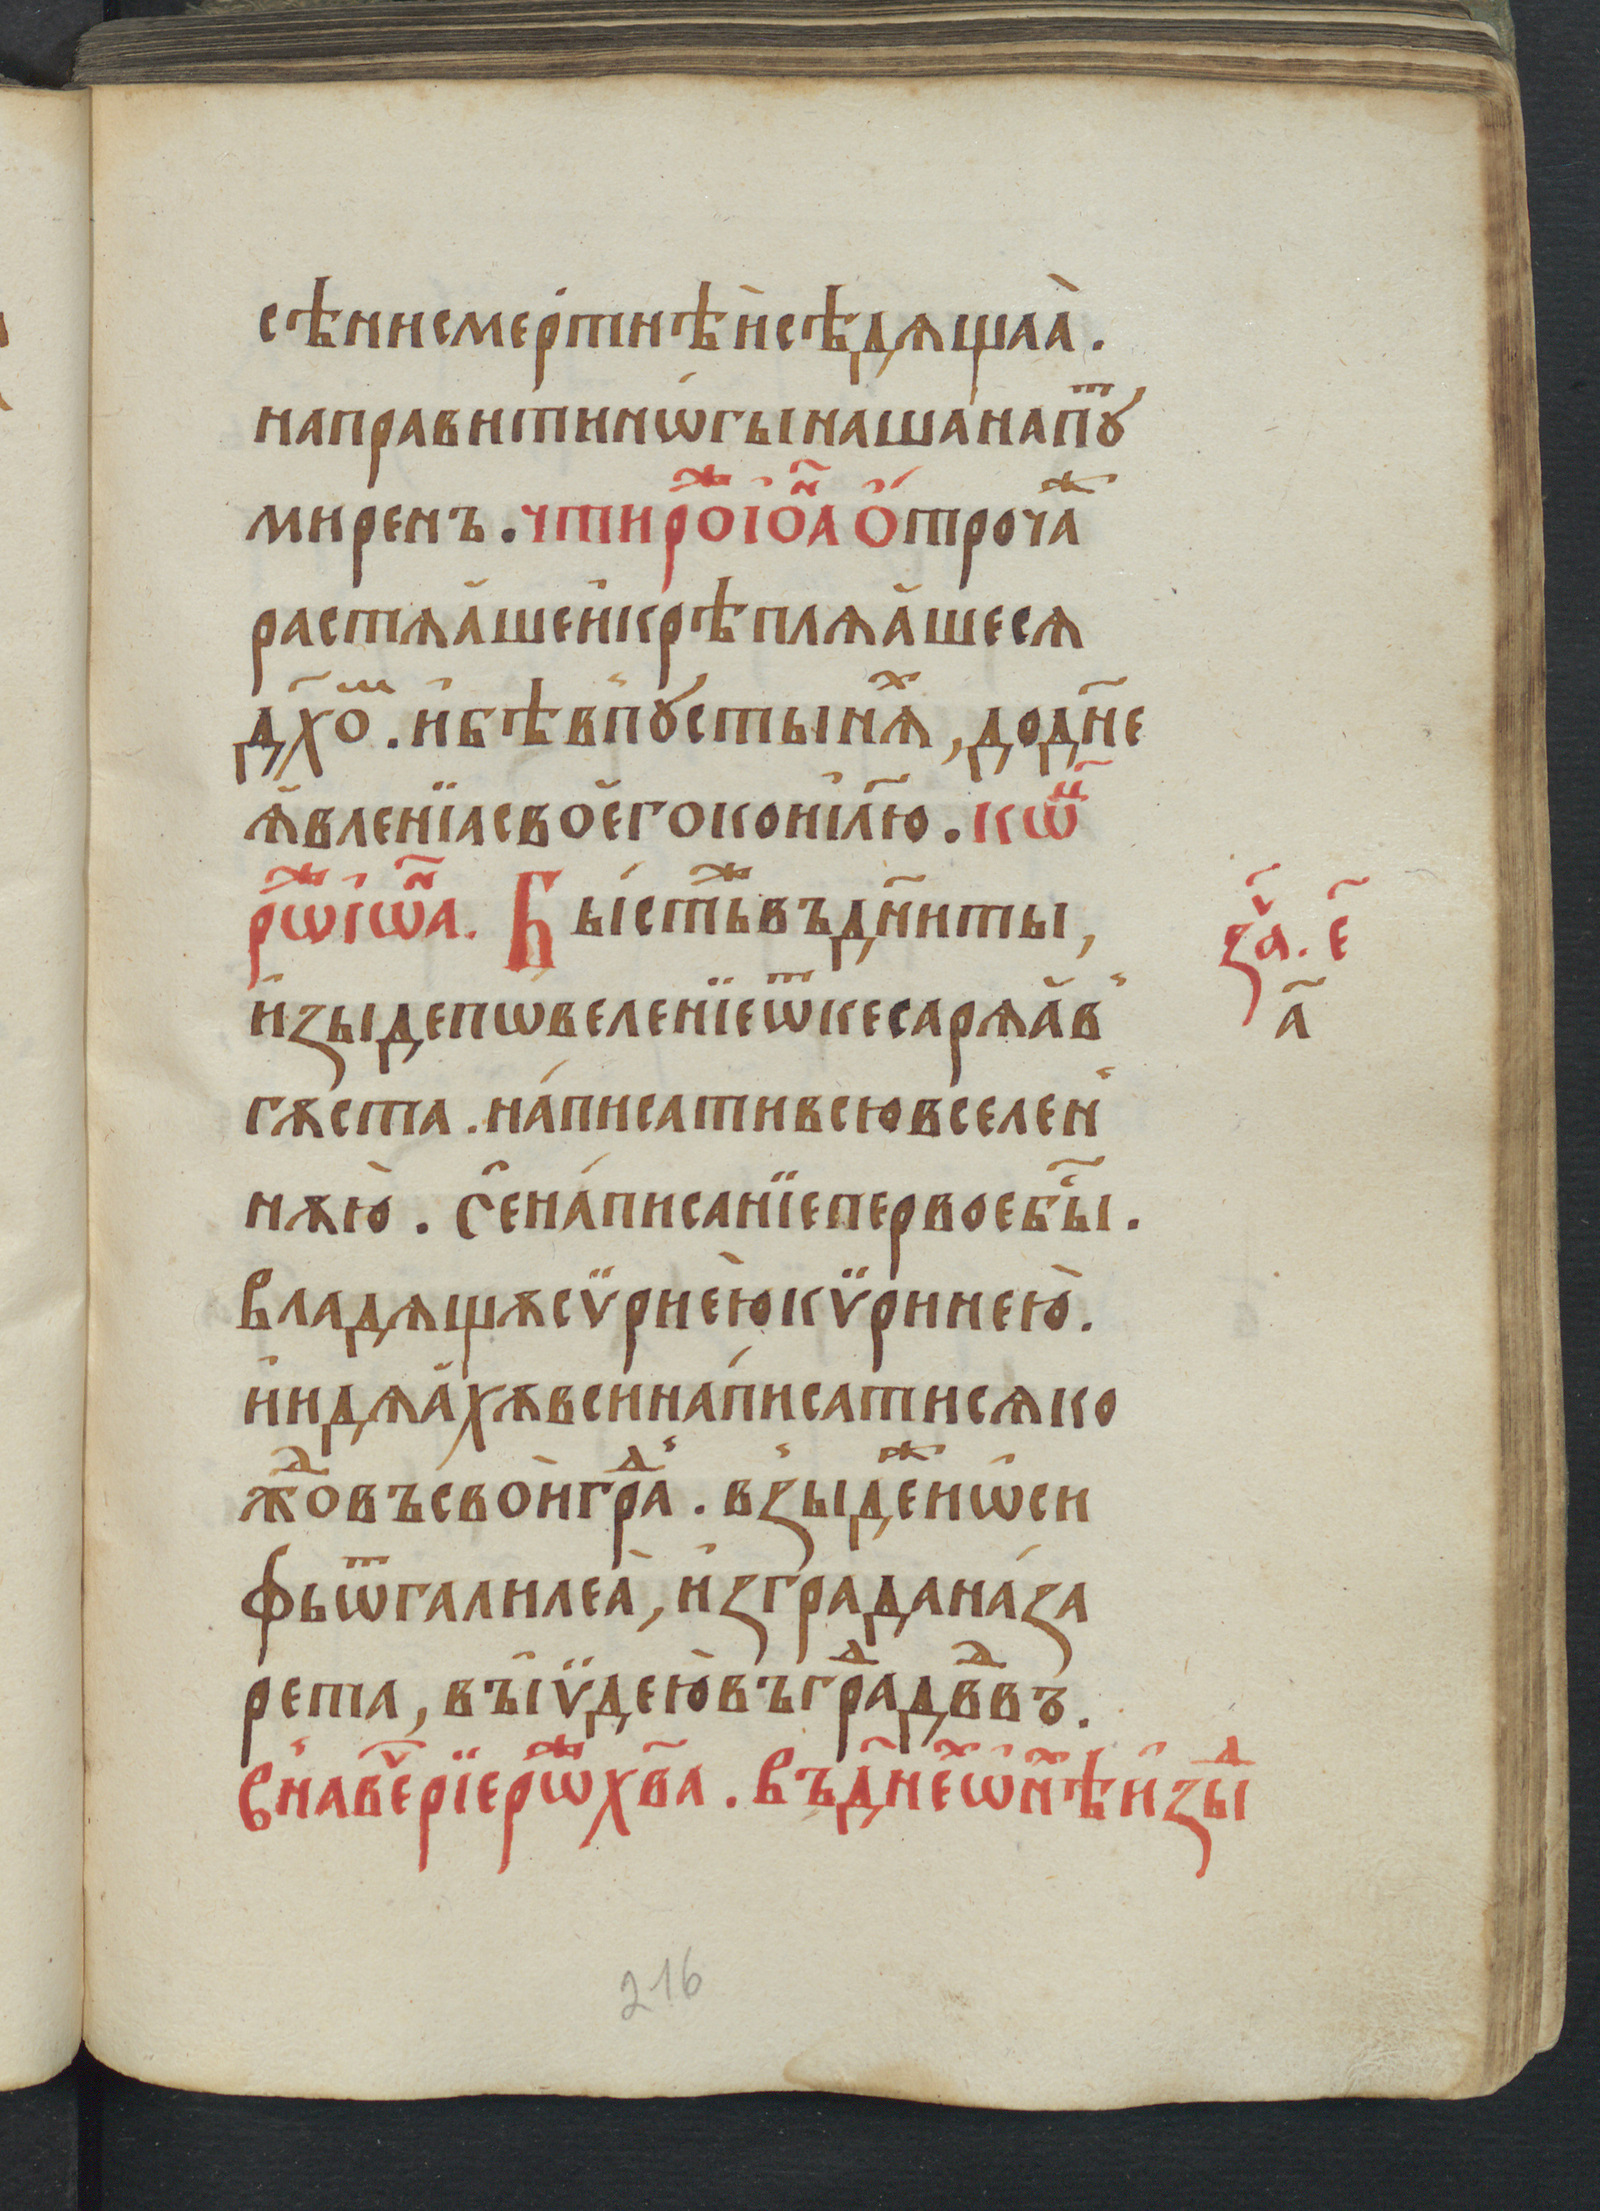 сѣнисмертнѣѝсѣдѧщаа̀.
направитинѡ́гынашана́пꙋⷮ
миренъ. чтирⷤо҇і҆ѻⷩ҇а Ѻ҆́трочаⷤ
растѧа҆шеи҆крѣплѧа҆шесѧ
дх҃оⷨ. и҆бѣвпꙋстынѧⷯ, доднⷭ҇е
ꙗ҆вленїасвоегокоі҆и҃лю. кѡⷩ҇ⷰ
рⷤѡі҆ѡⷩ҇а. Бы́стьⷤвъдн҃иты,
и҆зыдепѡвеленїеѿкесарѧа҆в
гѫста. на́писативсювселен
нѫю̀. Се҆на́писанїепервоебы҇́.
Владѧщѫсѵ̈риею̀кѵ̈ринею̀.
и҆идѧа҆хѫвсина́писатисѧко
жⷣовъсвоѝграⷣ. взыдеⷤиѡ҆си
фьѿгалилеа̀, и҆зграданаза
рета, въі҆ѵ̈дею̀въграⷣдв҃ⷣвъ.
Внавеⷱ҇рїерⷤѡхв҃а. Въдн҃еⷯѡнⷯѣи҆зыⷣ
зⷱ҇а. е҃
а҃
216